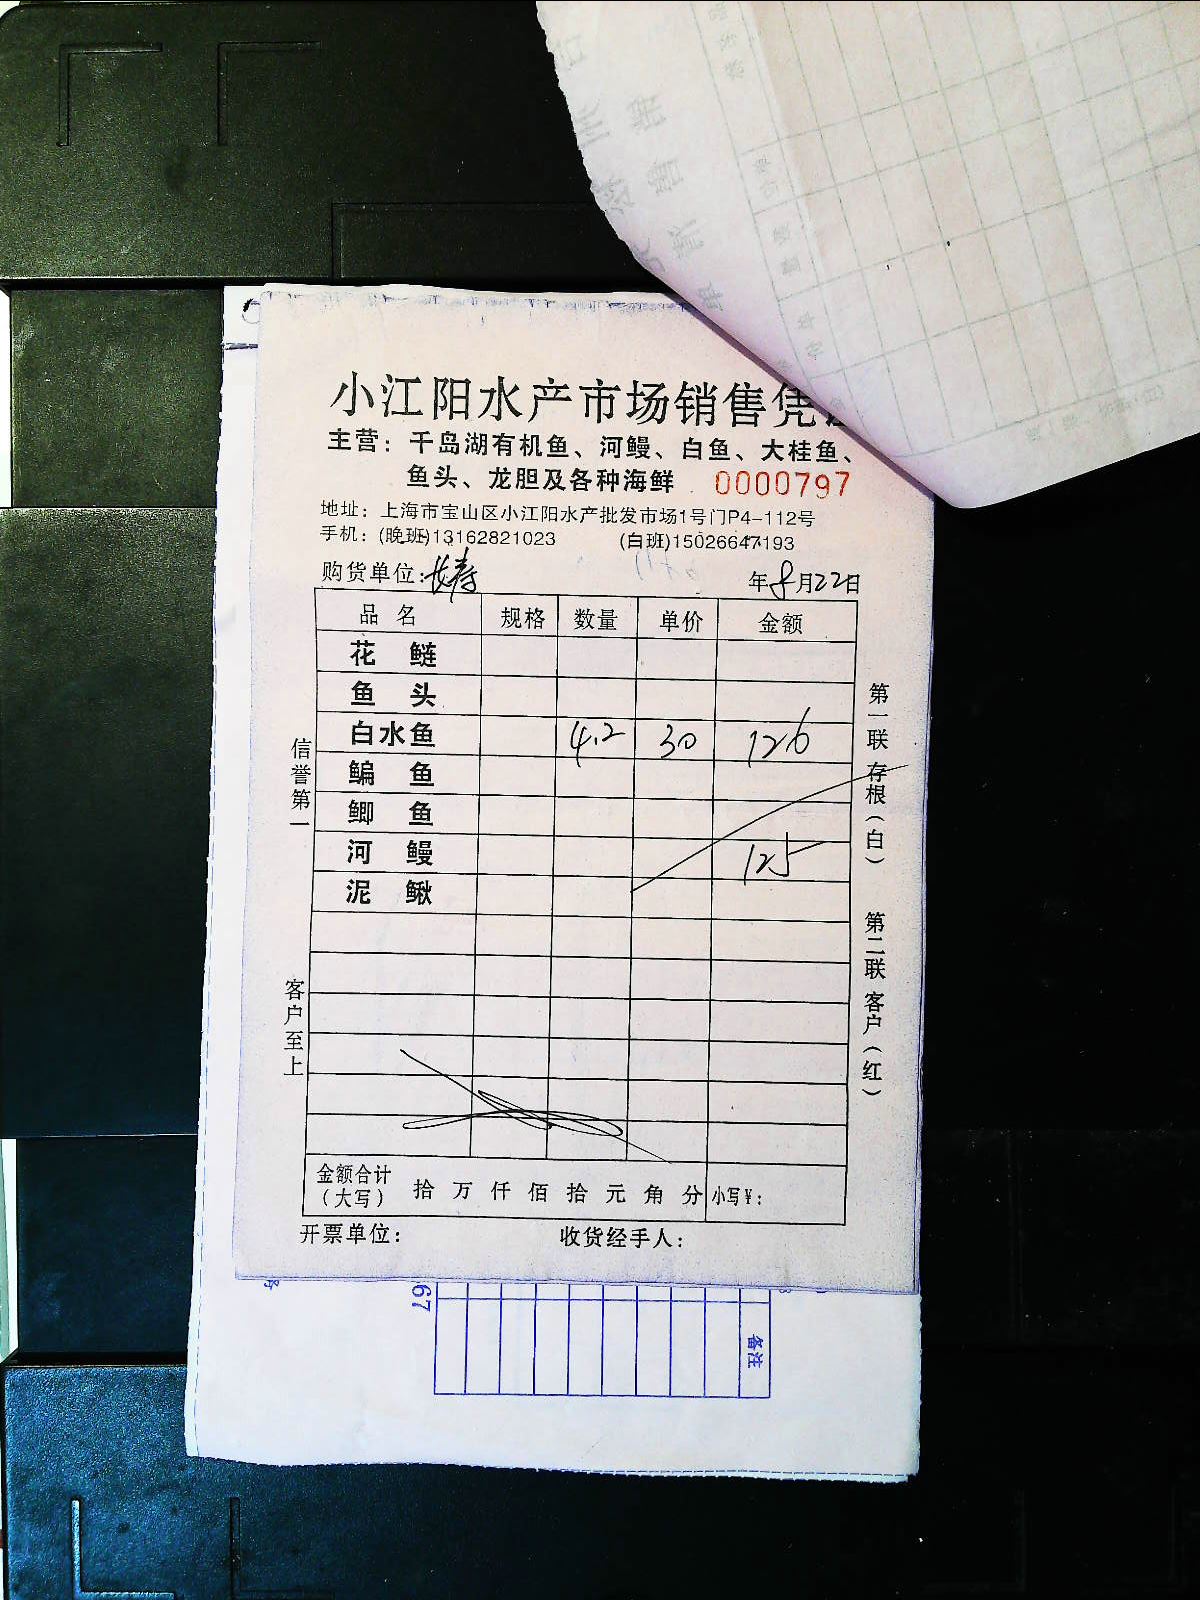 小江阳水产市场销售凭
主营：千岛湖有机鱼、河鳗、白鱼、大桂鱼、
鱼头、龙胆及各种海鲜 0000797
地址：上海市宝山区小江阳水产批发市场1号门P4-112号
手机：(晚班)13162821023 (白班)15026647193
购货单位：长寿 年8月22日
品 名 规格 数量 单价 金额
花 鲢
鱼 头
白水鱼 4.2 30 126
鳊 鱼
鲫 鱼
河 鳗 125
泥 鳅
金额合计（大写） 拾 万 仟 佰 拾 元 角 分 小写¥：
开票单位： 收货经手人：
信誉第一
客户至上
第一联 存根（白）
第二联 客户（红）
67
备注